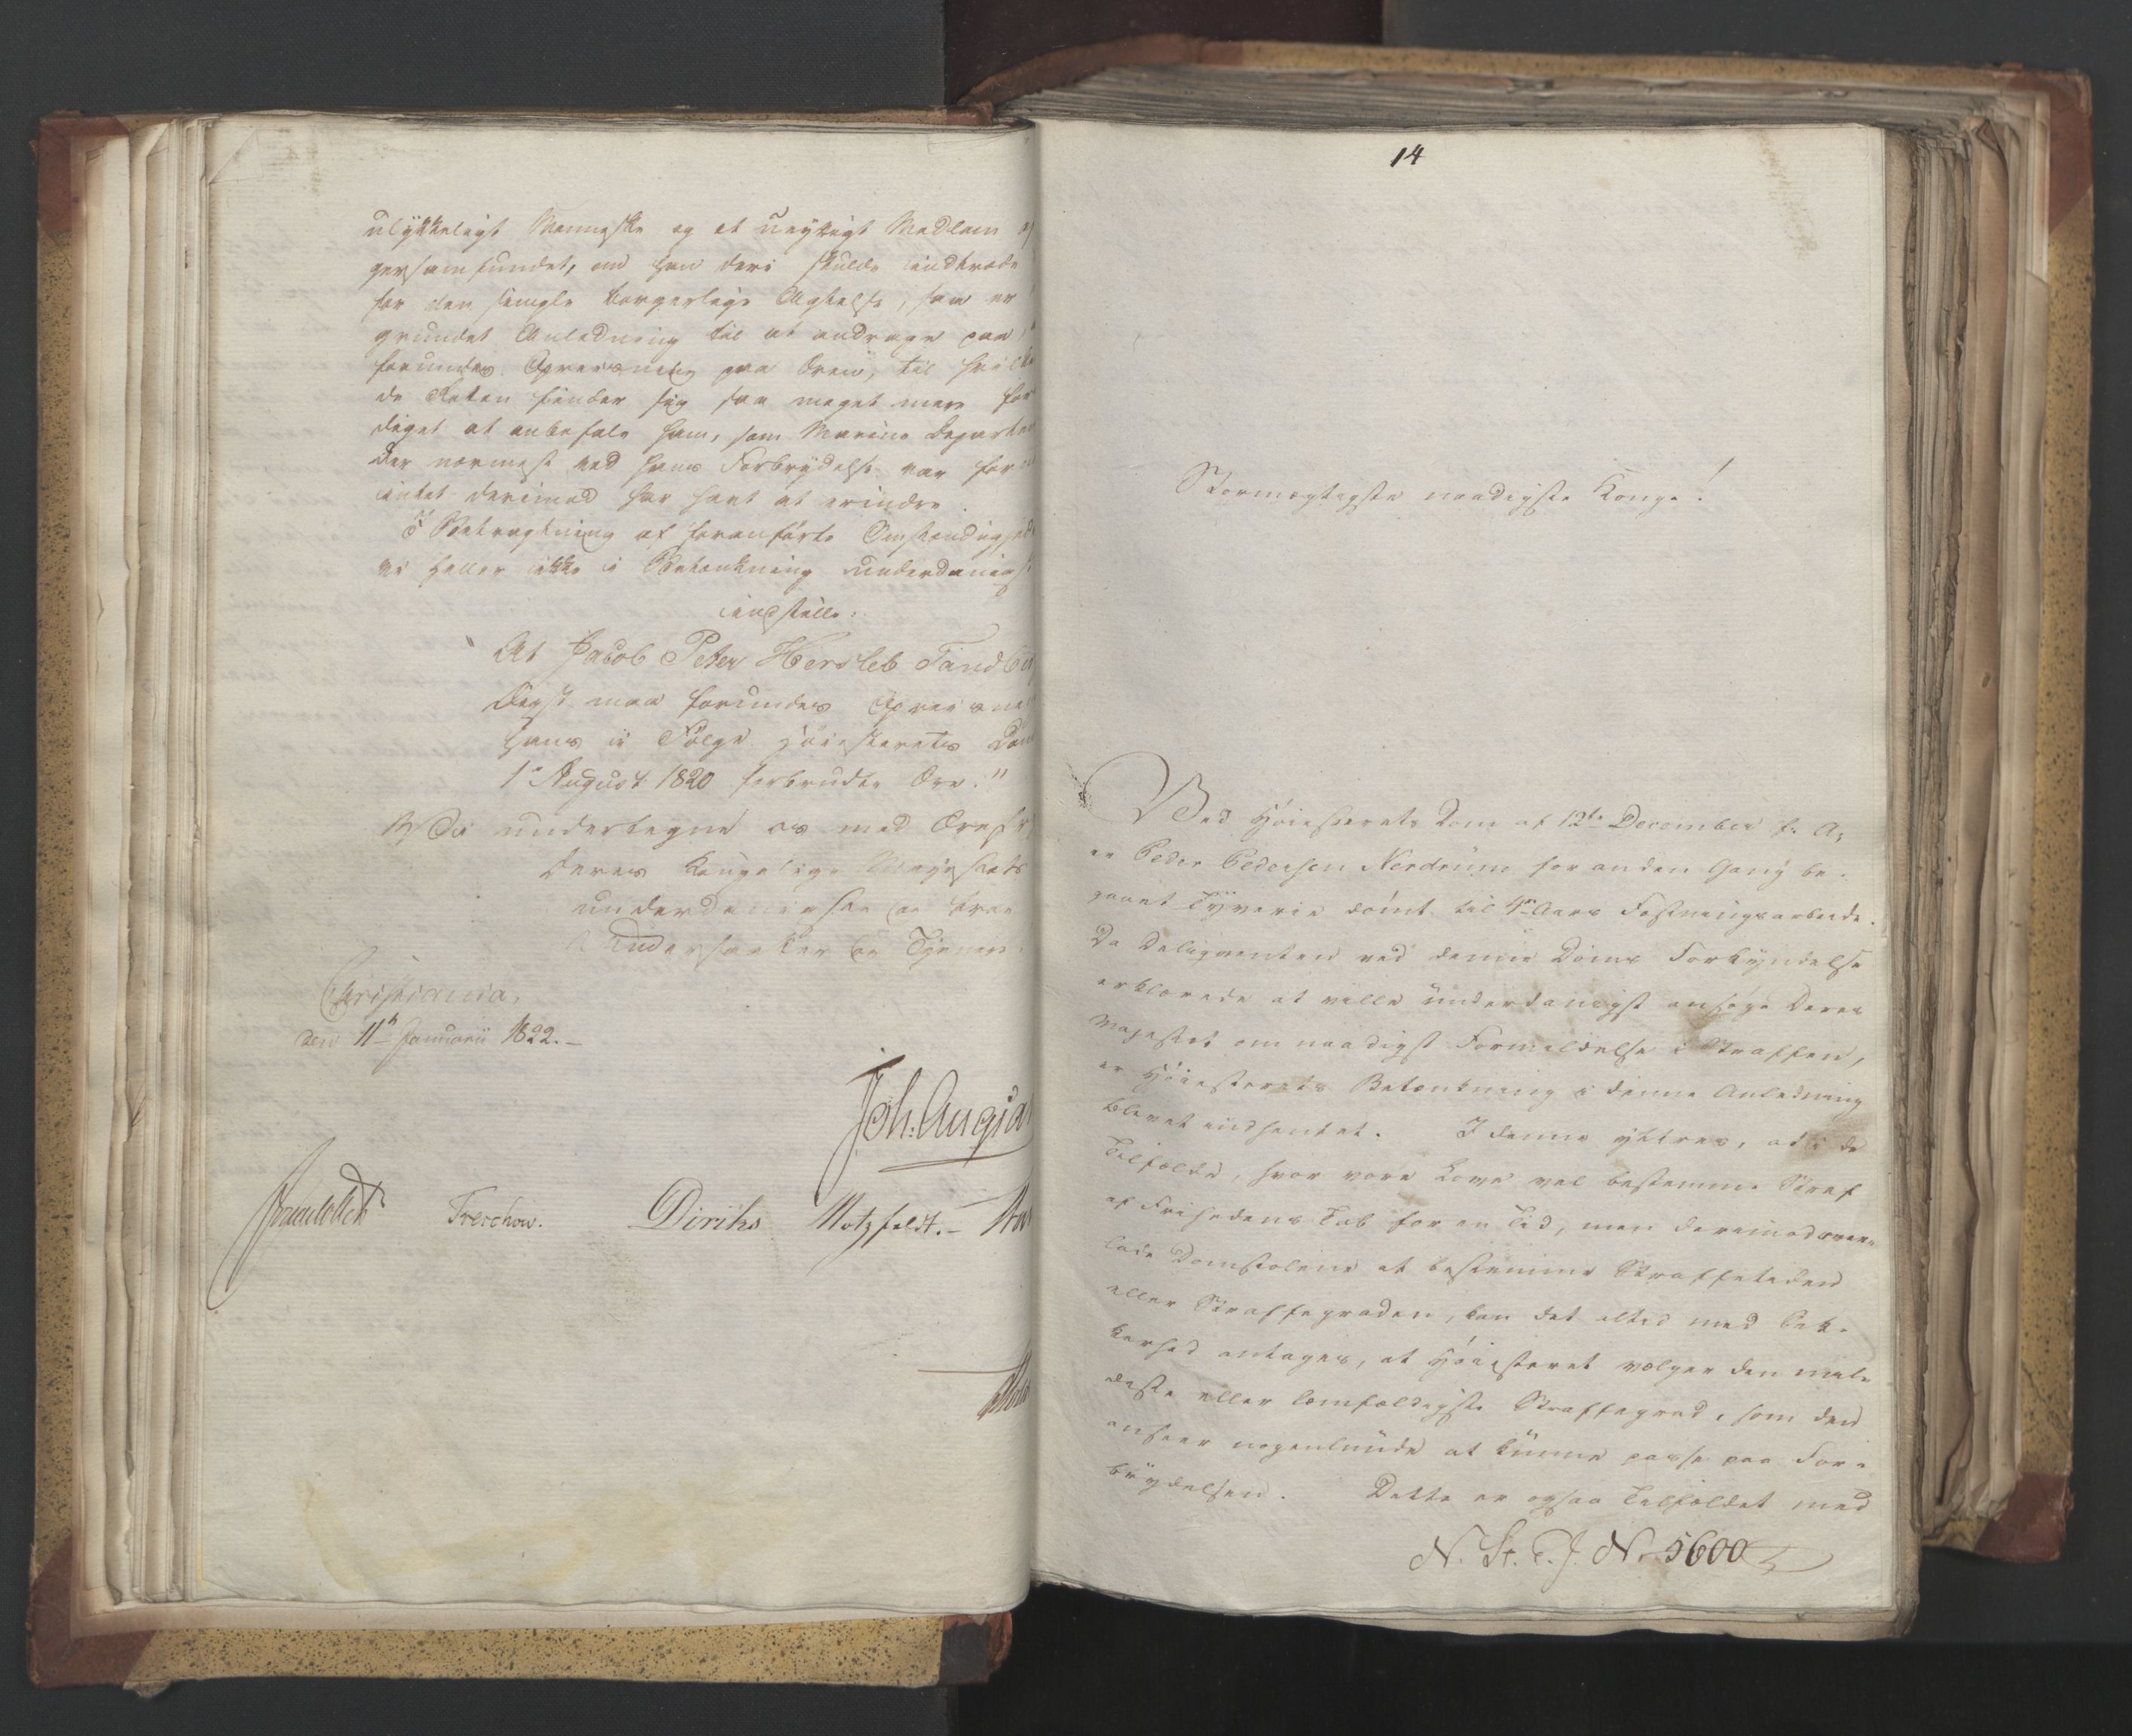 ulykkeligt Menneske og et unyttigt Medlem
gersamfundet, om han deri skulde indtræde
for den simple borgerlige Agtelse, saa er
grundet Anledning til at andrage paa
forundes Opreisning paa Æren, til hvilken
de Raten finder sig saa meget mere
diget at anbefale ham, som Marine Departe
der nærmest ved hans Forbrydelse var
intet derimod har havt at erindre.
I Betragtning af foranførte Omstændighed
vi heller ikke i Betænkning underdanigst
indstille:
"At Jacob Peter Hersleb
digst maa forundes Opreisning
hans i Følge Høiesterets Dom
1e August 1820 forbrudte Ære."
Vi undertegne os med Ærefr
Deres Kongelige Majestæts
underdanigste og troe
Undersaatter og Tjenere.
Christiania,
den 11te Januarii 1822.
Joh. Aug
Sommerfeldt Treschow. Diriks Motzfeldt.
14
Stormægtigste naadigste Konge!
Ved Høiesterets Dom af 12te December f. A.
er Peder Pedersen Nerdrum for anden Gang be-
gaaet Tyverie dømt til 4re Aars Fæstningsarbeide.
Da Delinqventen ved denne Doms Forkyndelse
erklærede at ville underdanigst ansøge Deres
Majestæt om naadigst Formildelse i Straffen,
er Høiesterets Betænkning i denne Anledning
blevet indhentet. I denne yttres, at i de
Tilfælde, hvor vore Love vel bestemme Straf
af Frihedens Tab for en Tid, men derimod over-
lade Domstolene at bestemme Straffetiden
eller Straffegraden, kan det altid med Sik-
kerhed antages, at Høiesteret vælger den mil-
deste eller lemfældigste Straffegrad, som den
anseer nogenlunde at kunne passe paa For-
brydelsen. Dette er ogsaa Tilfældet med
N. St. E. J. No 5600